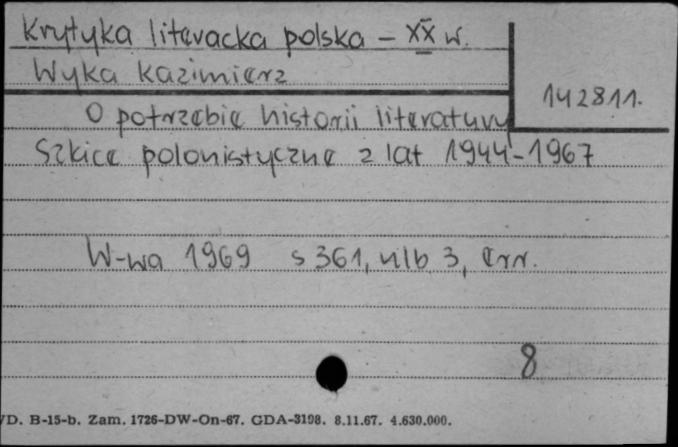 Krytyka literacka polska – XX w.
Wyka Kazimierz
142811.
O potrzebie historii literatury
Szkice polonistyczne z lat 1944-1967
W-wa 1969 s 361, nlb 3, err.
8
VD. B-15-b. Zam. 1726-DW-On-67. GDA-3198. 8.11.67. 4.630.000.